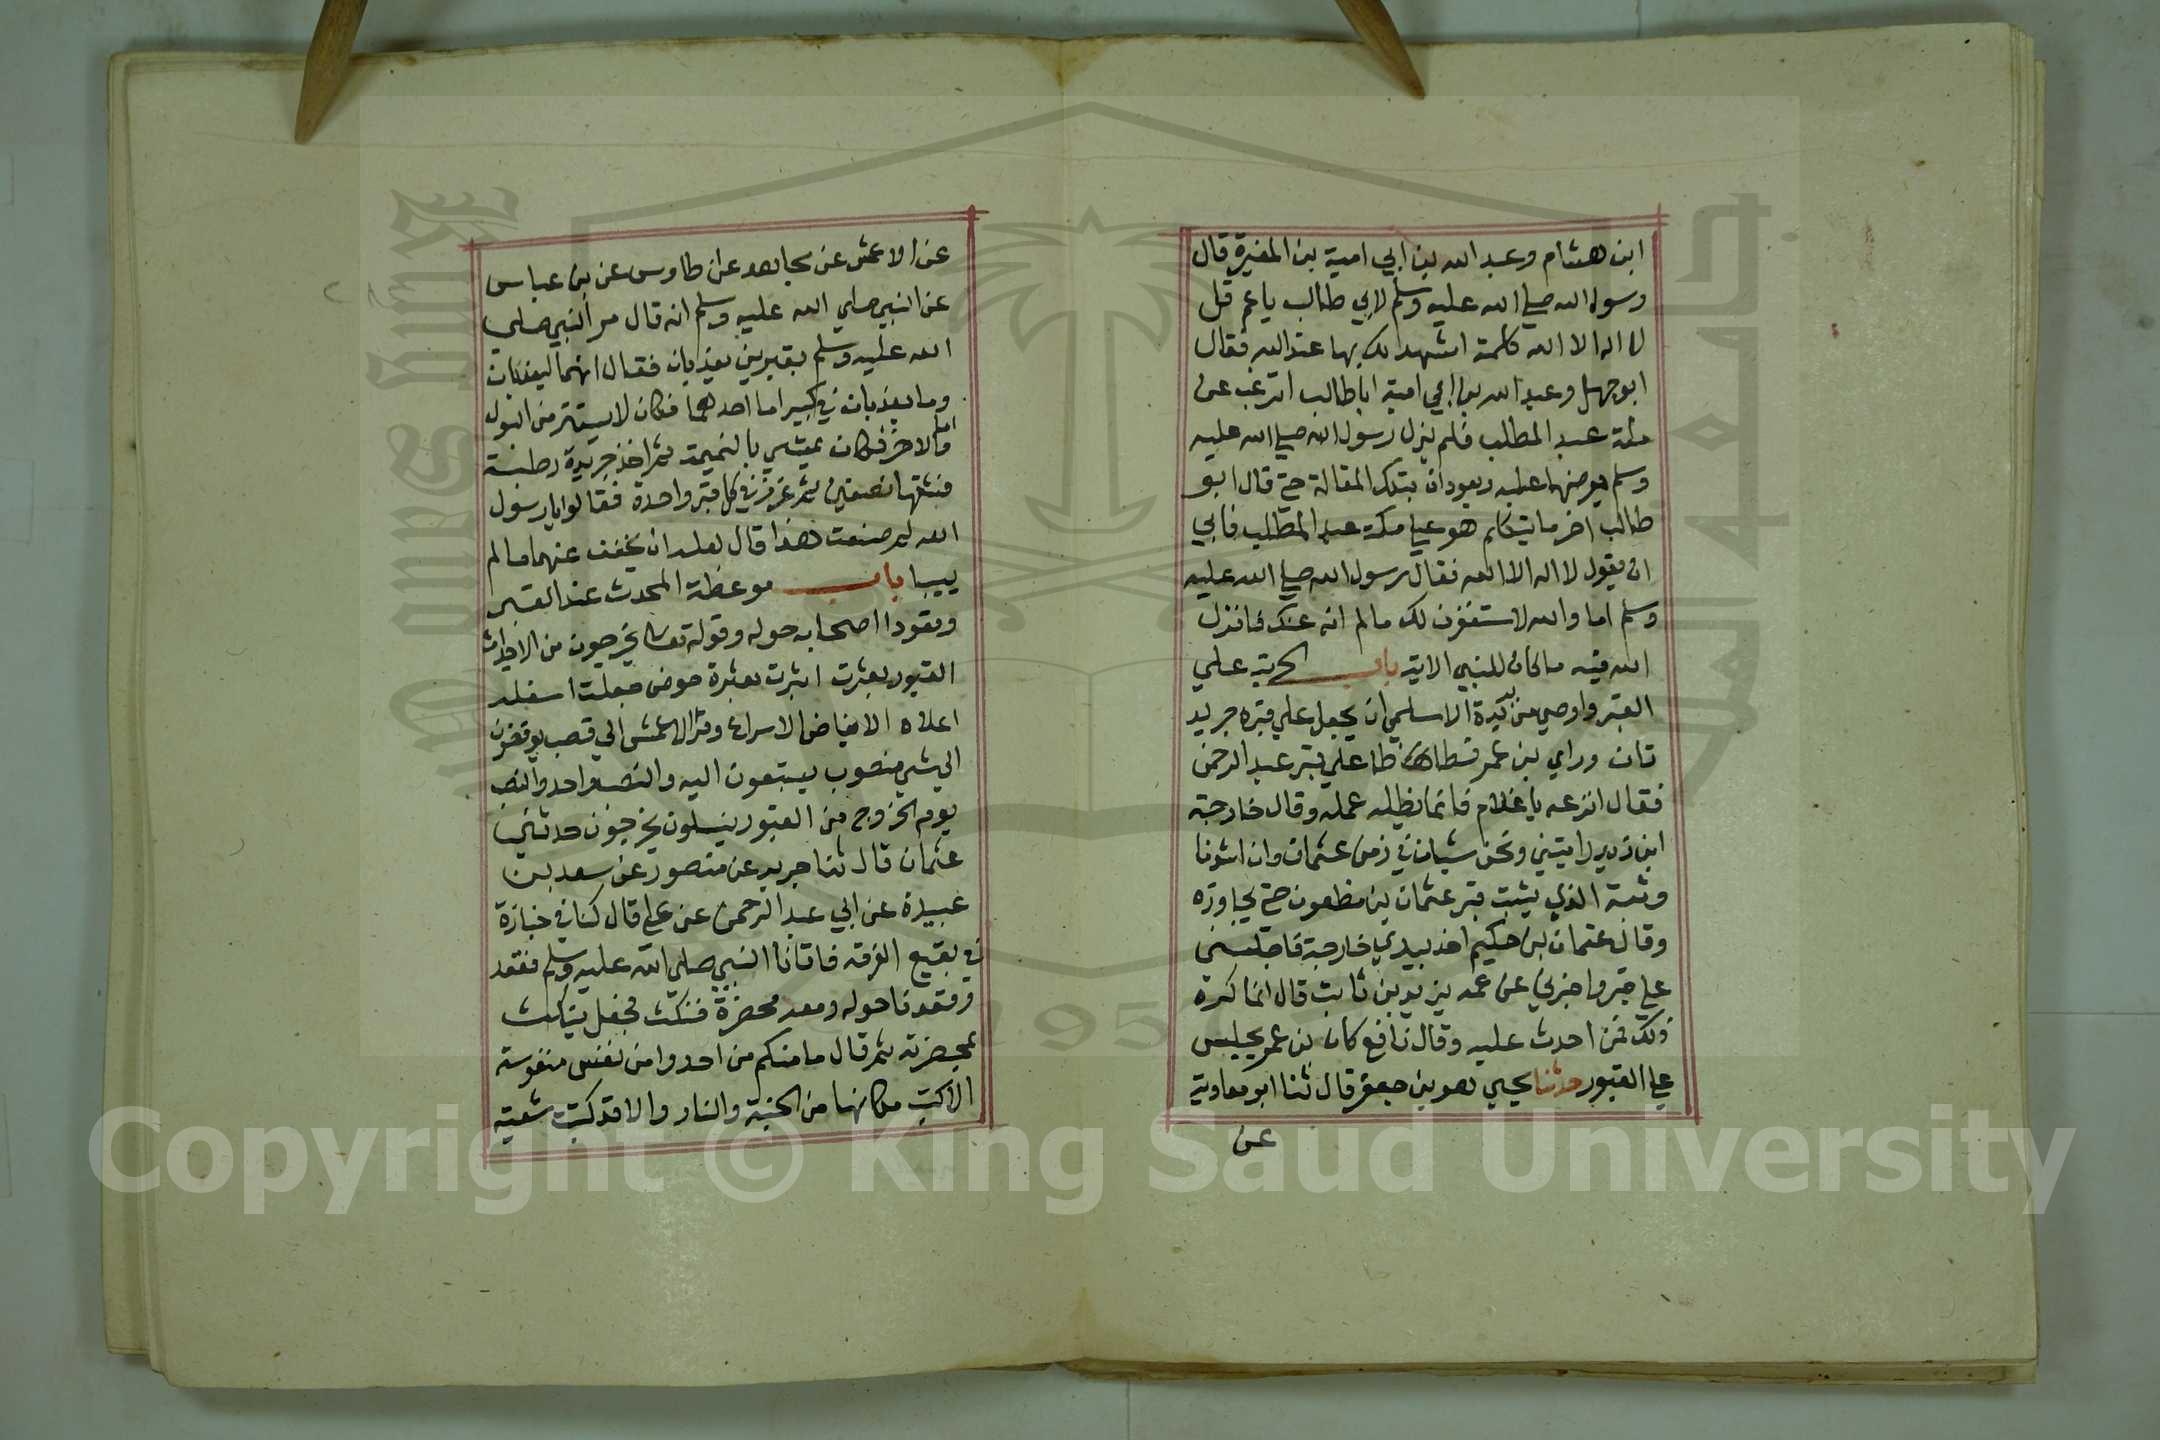 ابن هشام وعبد الله بن ابي امية بن المغيرة قال
رسول الله صلي الله عليه وسلم لابي طالب ياعم قل
لا اله الا الله كلمة اشهد لك بها عند الله فقال
ابو جهل وعبد الله بن ابي امية اباطالب اترغب عن
ملة عبد المطلب فلم يزل رسول الله صلي الله عليه
وسلم يعرضها عليه ويعودان بتلك المقالة حتي قال ابو
طالب اخر ما تيكلم هو علي ملة عبد المطلب فابي
ان يقول لا اله الا الله فقال رسول الله صلي الله عليه
وسلم اما والله لاستغفرن لك مالم انه عنك فانزل
الله فيه ماكان للنبي الاية باب الجريد علي
القبر واوصي بريدة الاسلمي ان يجعل علي قبره جريد
تان وراي بن عمر فسطاطا علي قبر عبد الرحمن
فقال انزعه ياغلام فانما يظله عمله وقال خارجة
ابن زيد رايتني ونحن شبان في زمن عثمان وان اشدنا
وثبة الذي يثب قبر عثمان بن مظعون حتي يجاوزه
وقال عثمان بن حكيم اخذ بيدي خارجة فاجلسني
علي قبر واخبرني عن عمه يزيد بن ثابت قال انما كره
ذلك لمن احدث عليه وقال نافع كان بن عمر يجلس
علي القبور حدثنا يحيي هو بن جعفر قال ثنا ابو معاوية
عن
عن الاعمش عن مجاهد عن طاوس عن بن عباس
عن النبي صلي الله عليه وسلم انه قال مر النبي صلي
الله عليه وسلم بقبرين يعذبان فقال انهما ليعذبان
وما يعذبان في كبير اما احدهما فكان لا يستتر من البول
واما الاخر فكان يمشي بالنميمة ثم اخذ جريدة رطبة
فشقها نصفين ثم غرز في كل قبر واحدة فقالوا يا رسول
الله لم صنعت هذا قال لعله ان يخفف عنهما مالم
ييبسا باب موعظة المحدث عند القبر
وقعود اصحابه حوله وقوله تعالي يخرجون من الاجداث
القبور بعثرت اثيرت بعثرت حوضي جعلت اسفله
اعلاه الايفاض الاسراع وقرا الاعمش الي نصب يوفضون
الي شي منصوب يستبقون اليه والنصب واحد والنصب
يوم الخروج من القبور ينسلون يخرجون حدثني
عثمان قال ثنا جرير عن منصور عن سعد بن
عبيدة عن ابي عبد الرحمن عن علي قال كنا في جنازة
في بقيع الغرقد فاتانا النبي صلي الله عليه وسلم فقعد
وقعدنا حوله ومعه مخصرة فنكث فجعل ينكث
بمخصرته ثم قال ما منكم من احد وما من نفس منفوسة
الا كتب مكانها من الجنة والنار والا قد كتبت شقية
Copyright © King Saud University
جامعة الملك سعود
King Saud University
1957